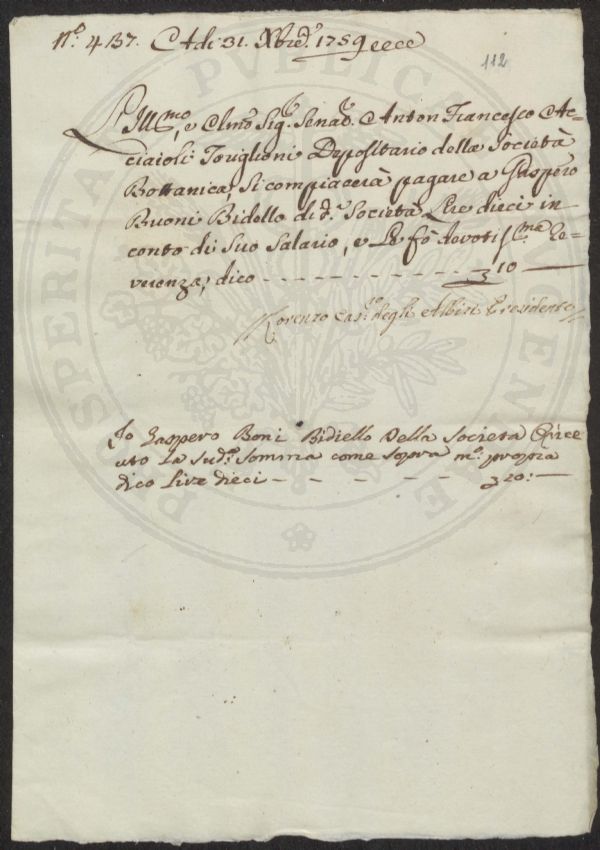 N.º 437. Adi 31. Xbre. 1759
112
L'Ill.mo, e Clmo Sig.r Senat.r Anton Francesco Ac=
ciaioli Toriglioni Depositario della Società
Bottanica, si compiacerà pagare a Gaspero
Buoni Bidello di d.a Società Lire dieci in
conto di Suo Salario, e Le fò devotiss.ma Re=
verenza, dico - - - - - - - - - - - - - 10 —
Lorenzo degli Albizi Presidente
Io Gaspero Boni Bidiello della Societa ò rice
uto la Sud.a Somma come sopra m.o propria
dico Lire dieci - - - - - - - - 10: —
PVBLICAE
PROSPERITATI